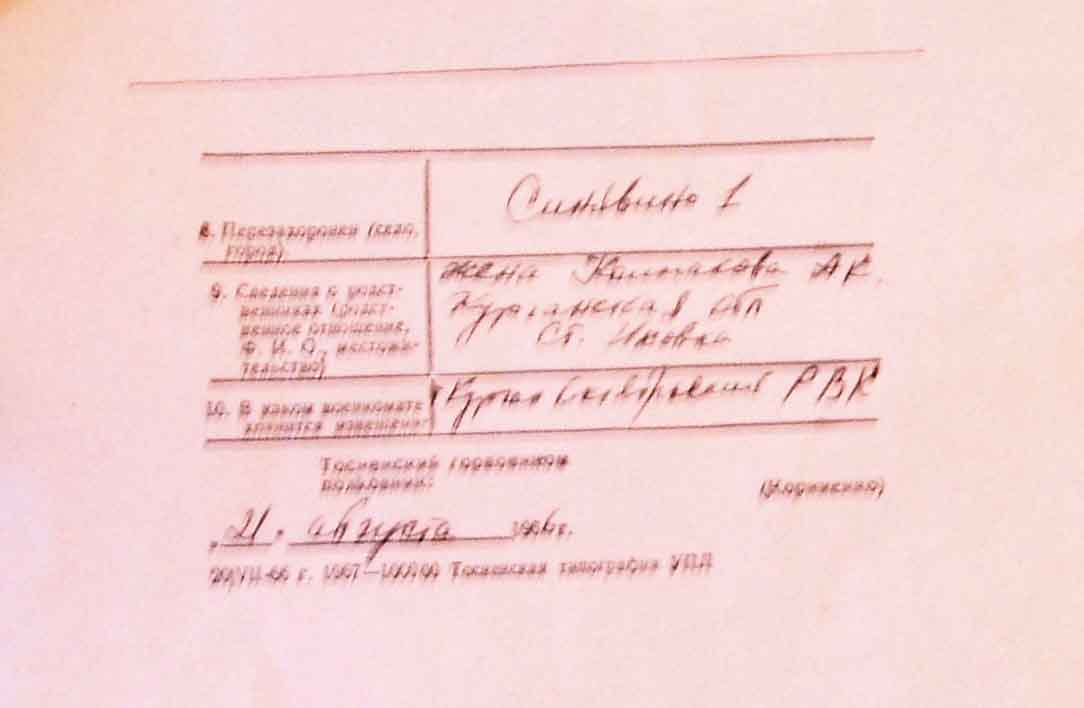 8. Перезахоронен (село, город)
Синявино 1
9. Сведения о родственниках (родственное отношение, Ф. И. О., местожительство)
жена А К.
Курганская обл
Ст. Иковка
10. В каком военкомате хранится извещение
РВК
Тосненский горвоенком
полковник:
(Корниенко)
„21" августа 1966 г.
Тосненская типография УПЛ